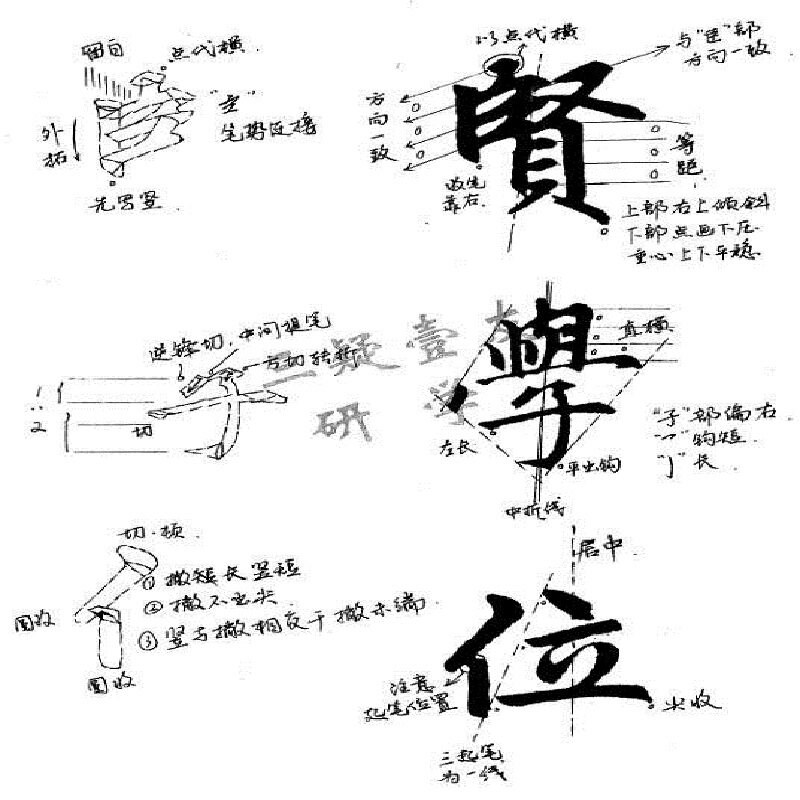 留白
点代横
外拓
"圭"
笔势连接
先写竖
以点代横
与"臣"部
方向一致
方向一致
賢
等距
收笔
靠右
上部右上倾斜
下部点画下压
重心上下平稳
逆锋切,中间提笔
方切转折
1:2
切
學
直横
左长
平出钩
中折线
"子"部偏右
"乛"钩短
"亅"长
壹
研学
切·顿
①撇短长竖短
②撇不出尖
③竖与撇相交于撇末端
圆收
圆收
居中
位
注意
起笔位置
三起笔
为一线
尖收